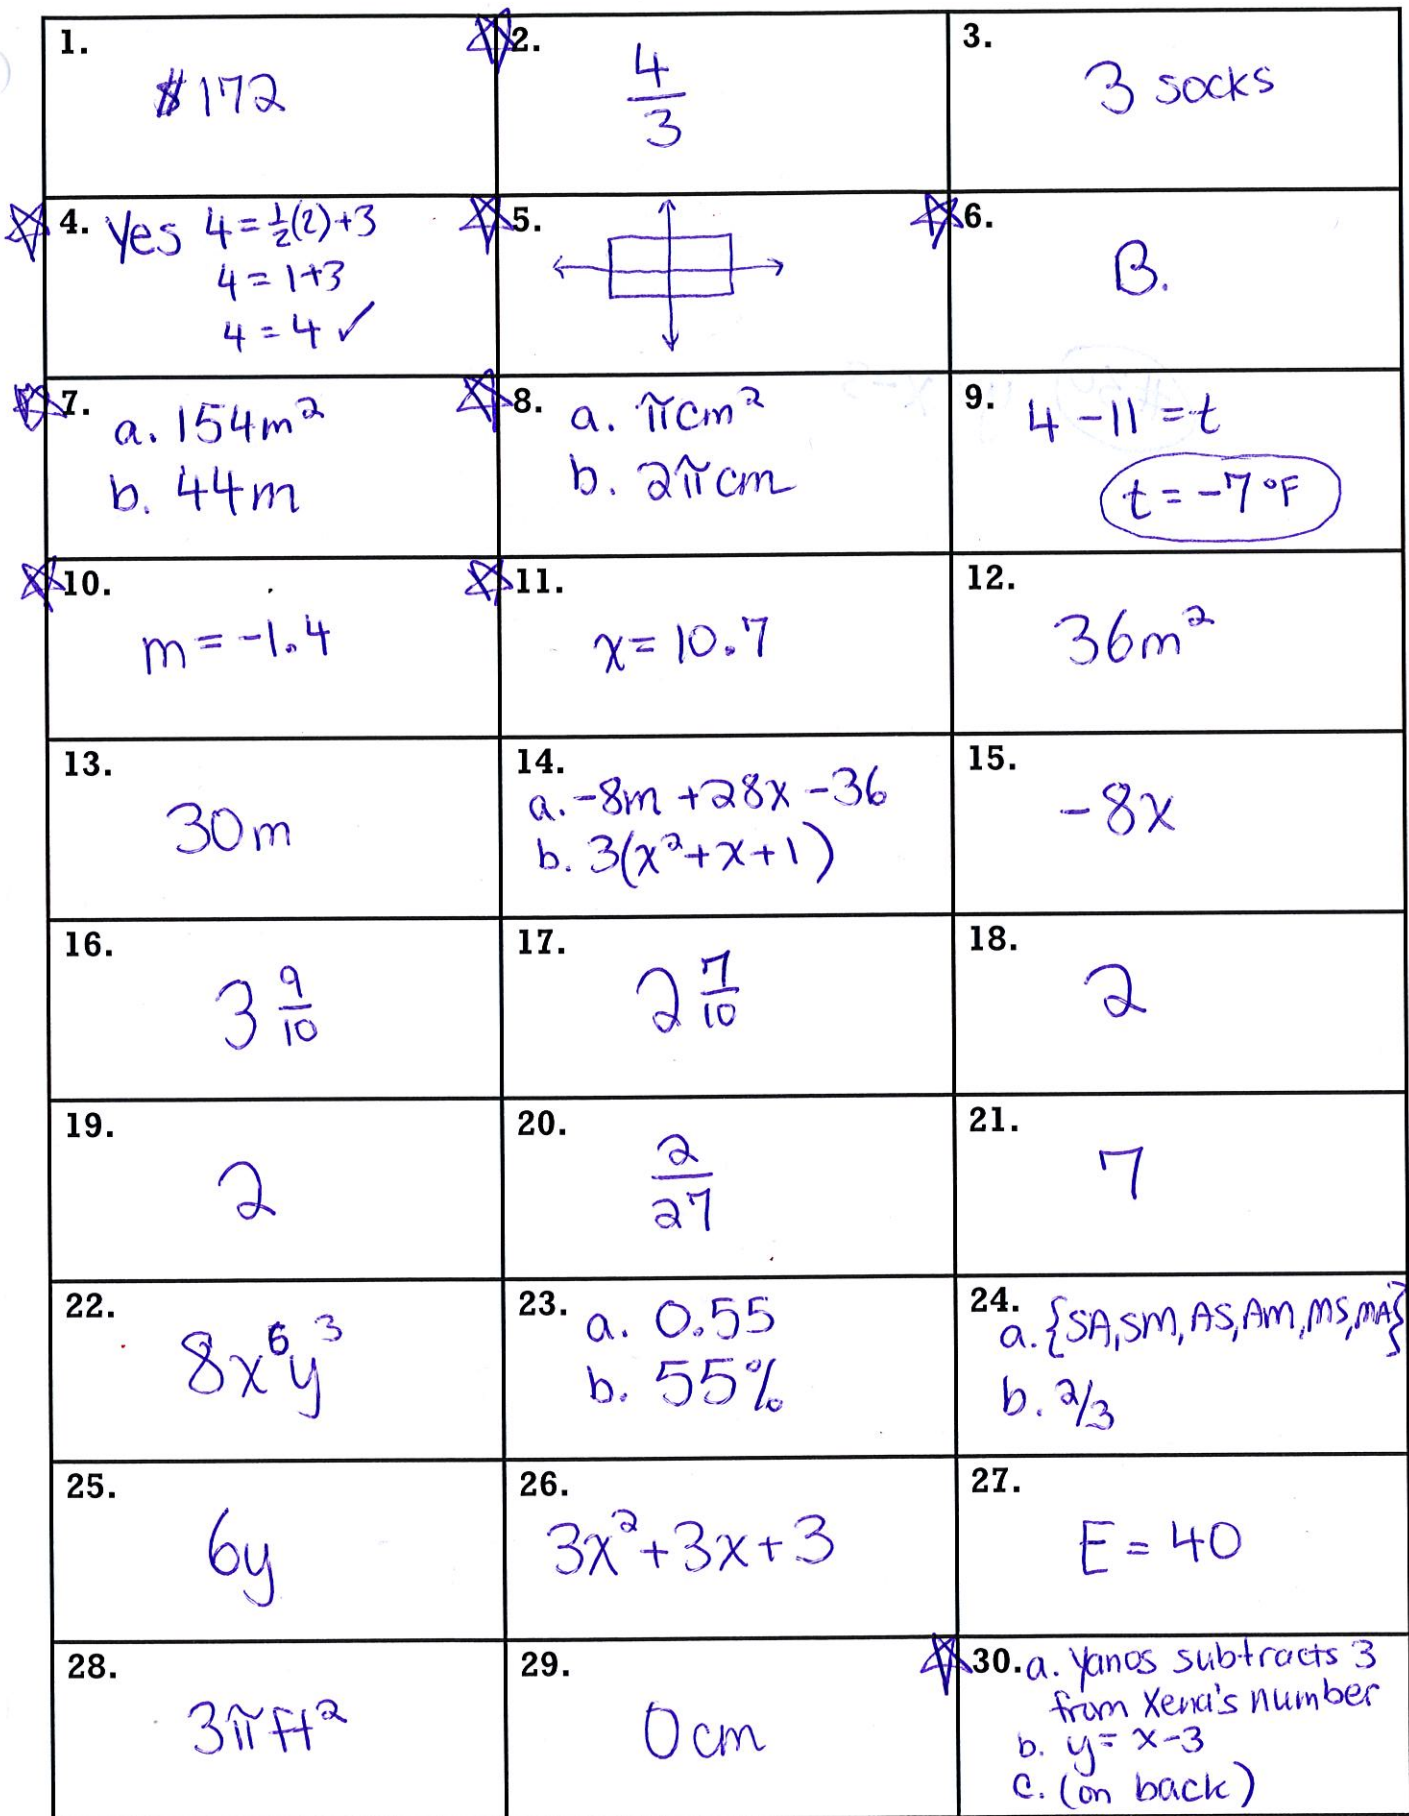 1.
$172
2.
4/3
3.
3 socks
4. Yes 4 = 1/2(2)+3
4 = 1+3
4 = 4 ✓
5.
6.
B.
7.
a. 154m²
b. 44m
8. a. πcm²
b. 2πcm
9. 4 - 11 = t
t = -7°F
10.
m = -1.4
11.
x = 10.7
12.
36m²
13.
30m
14.
a. -8m + 28x - 36
b. 3(x²+x+1)
15.
-8x
16.
3 9/10
17.
2 7/10
18.
2
19.
2
20.
2/27
21.
7
22.
8x⁶y³
23. a. 0.55
b. 55%
24.
a. {SA, SM, AS, AM, MS, MA}
b. 2/3
25.
6y
26.
3x²+3x+3
27.
E = 40
28.
3πft²
29.
0cm
30. a. Yanos subtracts 3
from Xena's number
b. y = x-3
c. (on back)